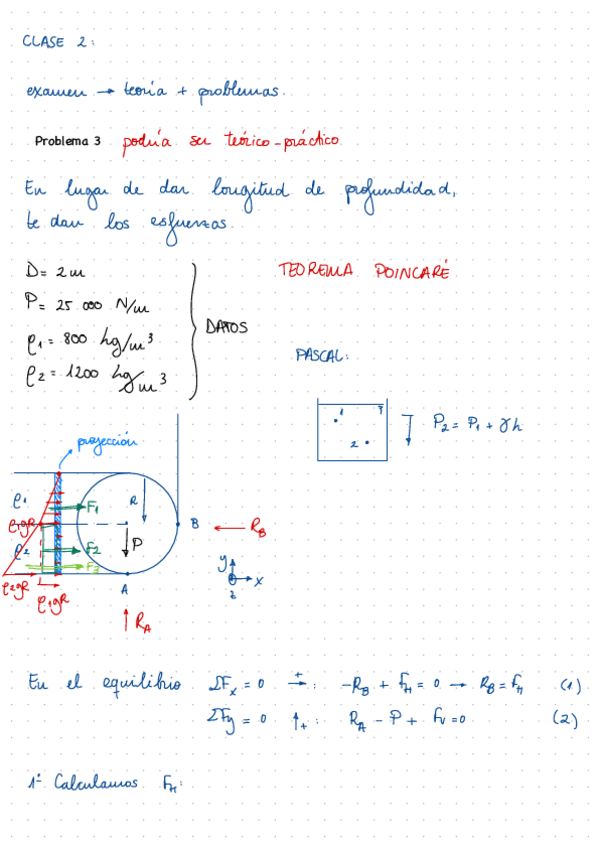 CLASE 2:
examen → teoría + problemas.
Problema 3 podría ser teórico-práctico
En lugar de dar longitud de profundidad,
te dan los esfuerzos.
D = 2m
P = 25 000 N/m
ρ1 = 800 kg/m³
ρ2 = 1200 kg/m³
DATOS
TEOREMA POINCARÉ
PASCAL:
1
2
P2 = P1 + γh
proyección
ρ1
F1
R
ρ1gR
ρ2
F2
P
B
RB
F3
ρ2gR
ρ1gR
A
RA
y
x
z
En el equilibrio ΣFx = 0 →+ : -RB + FH = 0 → RB = FH (1)
ΣFy = 0 ↑+ : RA - P + FV = 0 (2)
1º Calculamos FH: